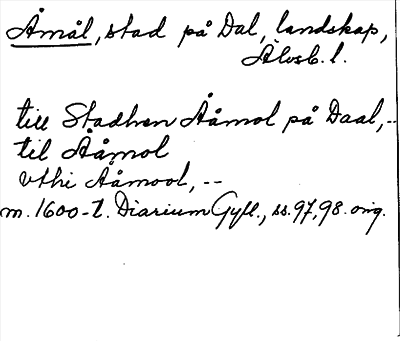 Åmål, stad på Dal, landskap,
Älvsb. l.
till StadhenÅåmol på Daal,--
til Ååmol
vthi Ååmool, --
m. 1600-t. Diarium Gyll., ss. 97, 98. orig.